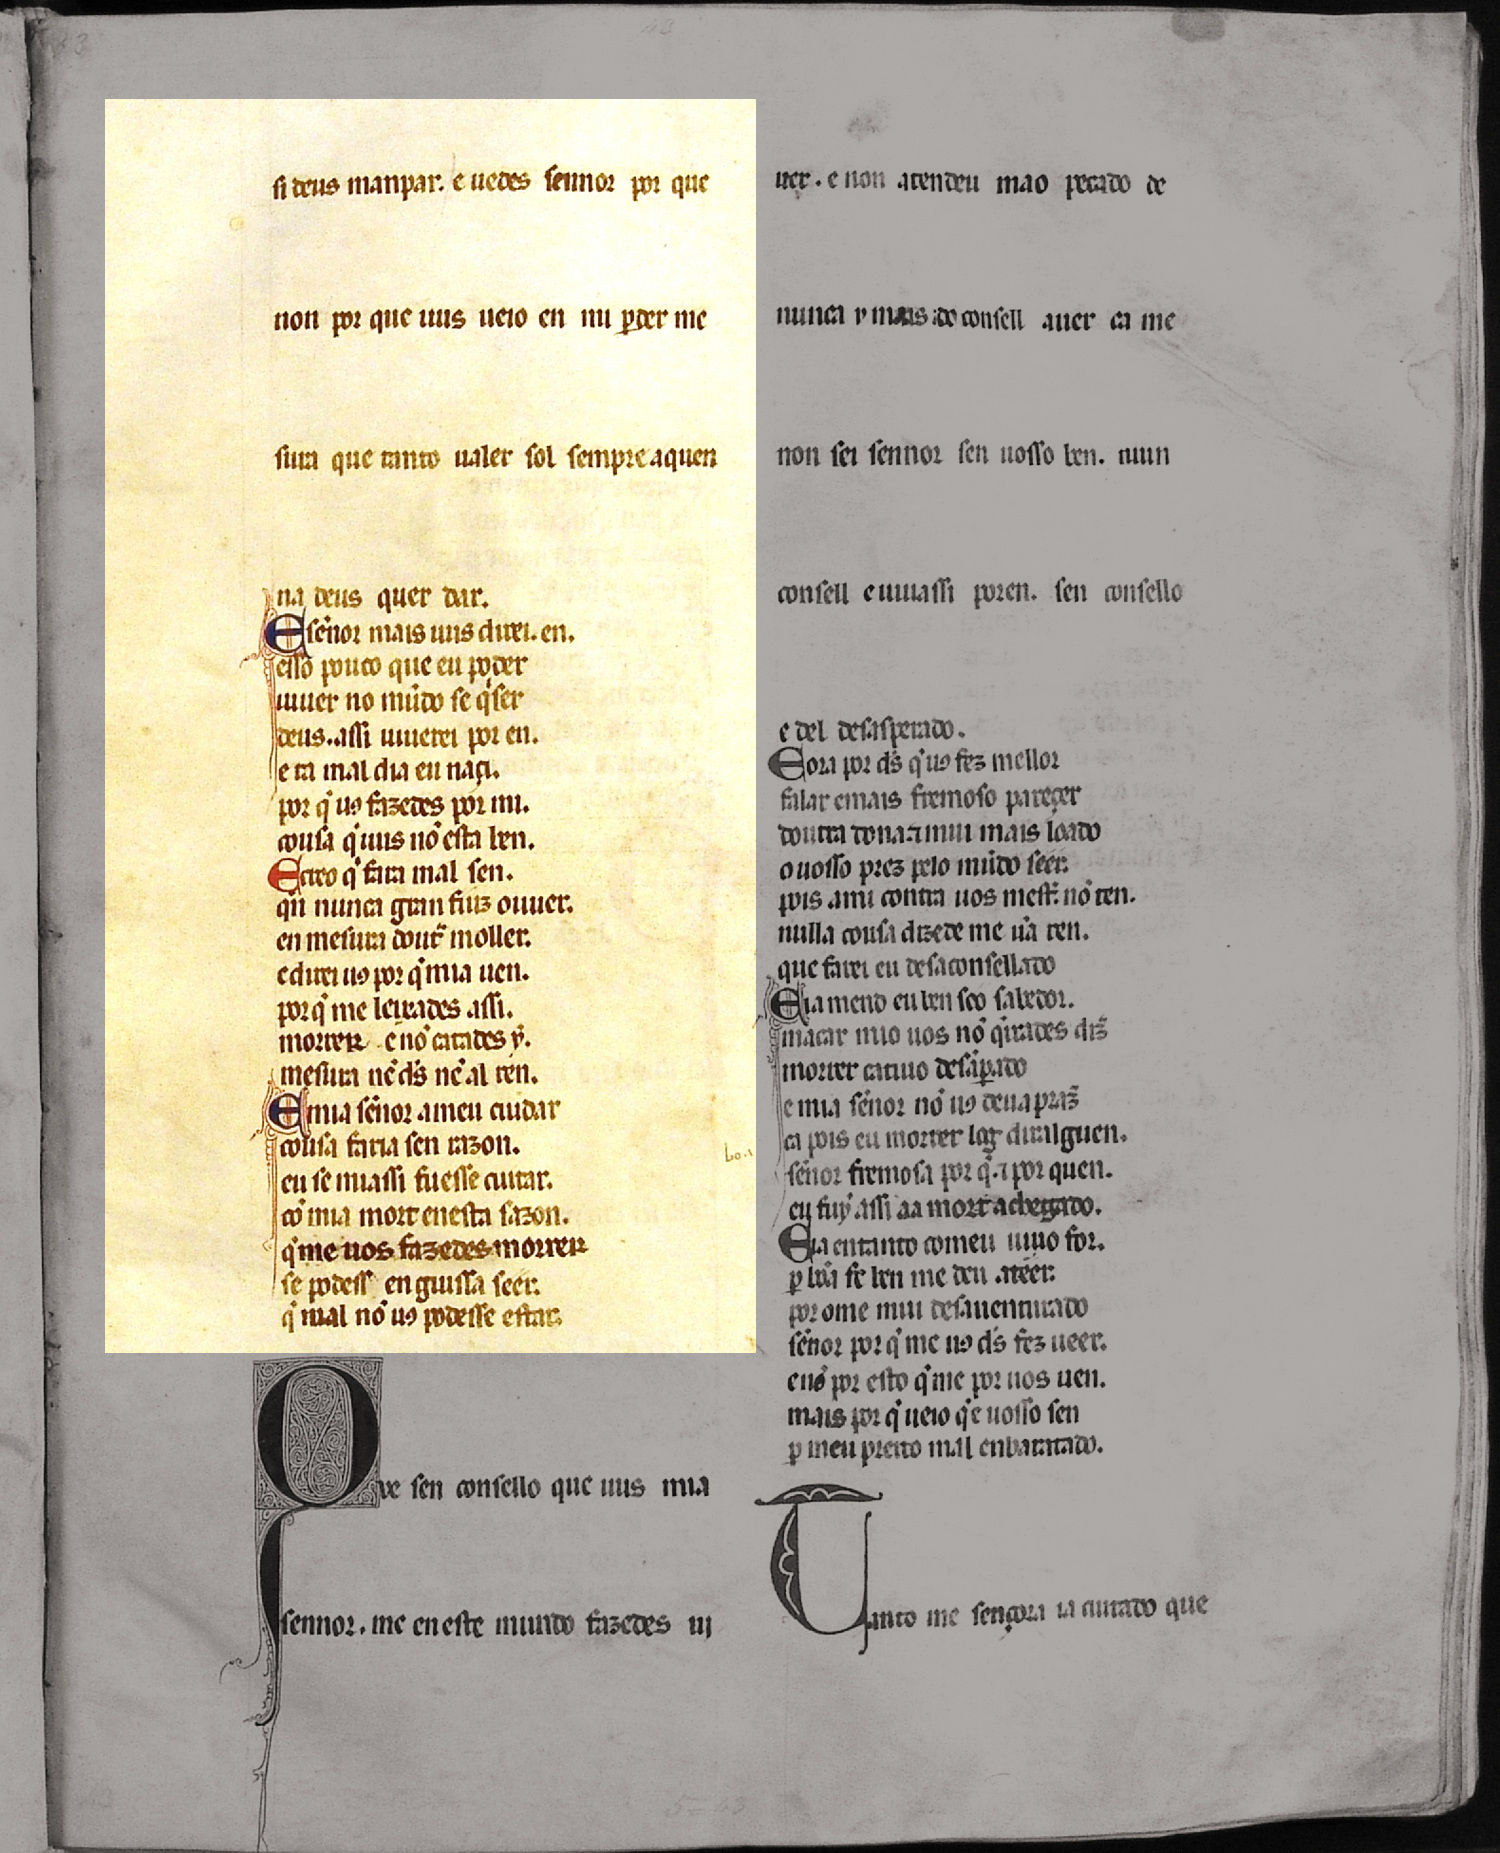 si deus manpar. e uedes sennor por que
non por que uus ueio en mi ꝑder me
sura que tanto ualer sol sempre aquen
na deus quer dar.
E sẽnor mais uus direi. en.
esso pouco que eu poder
uiuer no mũdo se q̇ser
deus. assi uiuerei por en.
e ta mal dia eu naçi.
por q̃ uꝯ fazedes por mi.
cousa q̃ uus nõ esta ben.
E creo q̃ fara mal sen.
qñ nunca gran fiuz ouuer.
en mesura dout̃ moller.
e direi uꝯ por q̃ mia uen.
por q̃ me leixades assi.
morrer e nõ catades y.
mesura nẽ d̃s nẽ al ren.
E mia sẽnor a meu cuidar
cousa faria sen razon.
eu se mi assi fuesse cuitar.
cõ mia mort enesta sazon.
q̃ me uos fazedes morrer
se podess en guissa seer.
q̃ mal nõ uꝯ podesse estar.
Ore sen consello que uus mia
sennor. me en este mundo fazedes ui
uer. e non atendeu mao pecado de
nunca y mais do consell auer ca me
non sei sennor sen uosso ben. niun
consell e uiuassi poren. sen consello
e del desasperado.
E ora por d̃s q̃ uꝯ fez mellor
falar e mais fremoso pareçer
doutra dona. ⁊ mui mais loado
o uosso prez pelo mũdo seer.
pois a mi contra uos mest̃. nõ ten.
nulla cousa dizede me ũa ren.
que farei eu desaconsellado
E ia meno eu ben seo sabedor.
macar mio uos nõ q̇rades diz̃
morrer catiuo desãꝑado
e mia sẽnor nõ uꝯ deu a praz̃
ca pois eu morrer log̃ dir alguen.
sẽnor fremosa por q̃. ⁊ por quen.
eu fuy assi aa mort achegado.
E ia en tanto comeu uiuo for.
ꝑ bõa fe ben me deu a teer.
por ome mui desauenturado
sẽnor por q̃ me uꝯ d̃s fez ueer.
e nõ por esto q̃ me por uos uen.
mais por q̃ ueio q̃ e uosso sen
ꝑ meu preito mal enbaratado.
Tanto me sençora ia cuitado que